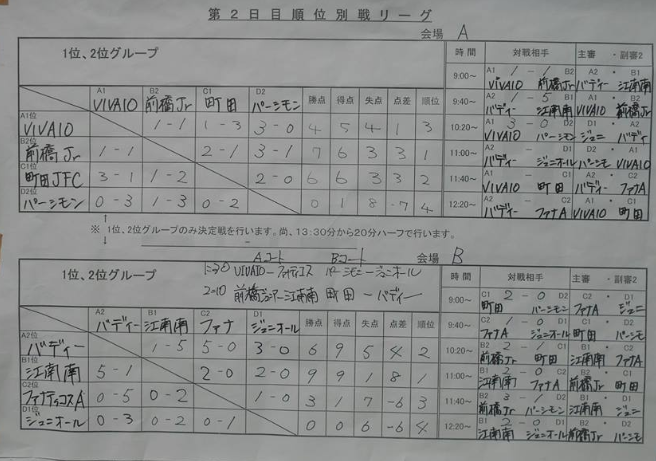 第2日目順位別戦リーグ
会場 A
1位、2位グループ
A1 B2 C1 D2
VIVAIO 前橋Jr 町田 パーシモン 勝点 得点 失点 点差 順位
A1位 VIVAIO 1-1 1-3 3-0 4 5 4 1 3
B2位 前橋Jr 1-1 2-1 3-1 7 6 3 3 1
C1位 町田JFC 3-1 1-2 2-0 6 6 3 3 2
D2位 パーシモン 0-3 1-3 0-2 0 1 8 -7 4
時間 対戦相手 主審・副審2
9:00〜 A1 1-1 B2 VIVAIO 前橋Jr A2・B1 バディー 江南南
9:40〜 A2 1-5 B1 バディー 江南南 A1・B2 VIVAIO 前橋Jr
10:20〜 A1 3-0 D2 VIVAIO パーシモン ジュニ バディ
11:00〜 バディー ジュニオール パーシモ VIVAIO
11:40〜 VIVAIO 町田 バディー ファナA
12:20〜 バディー ファナA VIVAIO 町田
※ 1位、2位グループのみ決定戦を行います。尚、13:30分から20分ハーフで行います。
Aコート Bコート
会場 B
VIVAIO-ファナティコス パーシモン-ジュニオール
前橋ジュニアー江南南 町田-バディー
1位、2位グループ
A2 B1 C2 D1
バディー 江南南 ファナ ジュニオール 勝点 得点 失点 点差 順位
A2位 バディー 1-5 5-0 3-0 6 9 5 4 2
B1位 江南南 5-1 2-0 2-0 9 9 1 8 1
C2位 ファナティコスA 0-5 0-2 1-0 3 1 7 -6 3
D1位 ジュニオール 0-3 0-2 0-1 0 0 6 -6 4
時間 対戦相手 主審・副審2
9:00〜 C1 2-0 D2 町田 パーシモン C2・D1 ファナA ジュニ
9:40〜 C2 1-0 D1 ファナA ジュニオール C1・D2 町田 パーシモ
10:20〜 B2 2-1 C1 前橋Jr 町田 B1・C2 江南南 ファナA
11:00〜 B1 2-0 C2 江南南 ファナA B2・C1 前橋Jr 町田
11:40〜 B2 3-1 D2 前橋Jr パーシモン B1・D1 江南南 ジュニ
12:20〜 B1 2-0 D1 江南南 ジュニオール B2・D2 前橋Jr パーシモ